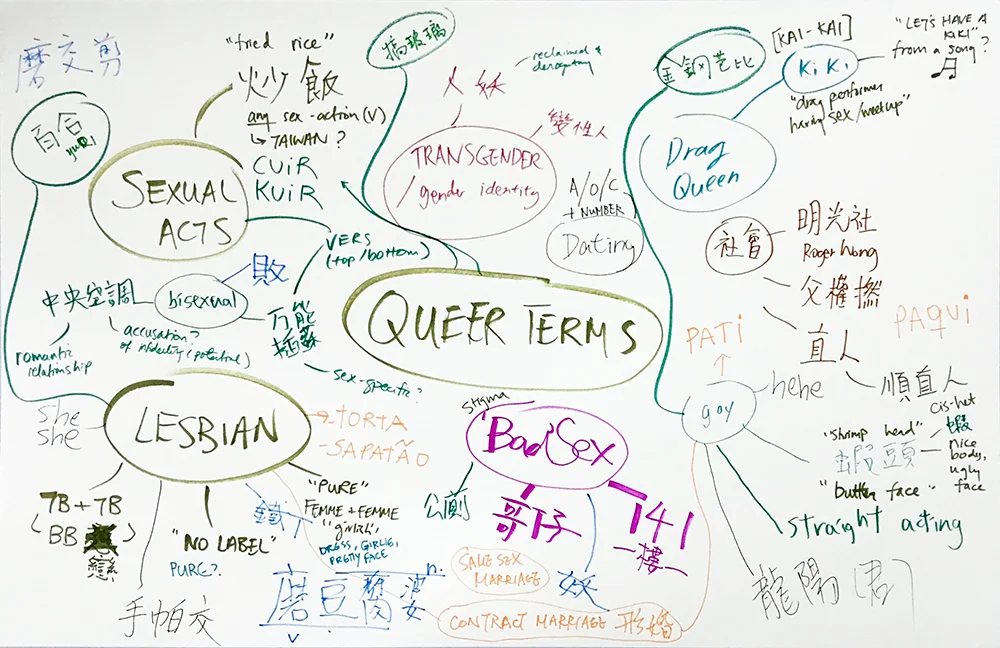 磨交剪
百合
yuRi
"fried rice"
炒飯
any sex-action (V)
↳ TAIWAN ?
CUiR
KUiR
SEXUAL
ACTS
搞玻璃
人妖
reclaimed &
derogatory
變性人
TRANSGENDER
/ gender identity
A/O/C
+ NUMBER
Dating
金鋼芭比
[KAI-KAI]
KiKi
"LET'S HAVE A
KiKi"
from a song?
"drag performer
having sex/meetup"
Drag
Queen
社會
明光社
Roger Wong
父權撚
直人
順直人
cis-het
VERS
(top/bottom)
敗
bisexual
中央空調
romantic
relationship
accusation?
of infidelity (potential)
万能
插蘇
sex-specific?
QUEER TERMS
PATi
PAQUi
hehe
gay
"shrimp head"
蝦頭
"butter face"
蝦
nice
body,
ugly
face
straight acting
龍陽(君)
she
she
LESBIAN
→ TORTA
- SAPATÃO
7B + 7B
(BB
戀)
"NO LABEL"
PURE?
手帕交
鐵T
"PURE"
FEMME + FEMME
"girlrl"
DRESS, GIRLIE,
PRETTY FACE
磨豆腐婆
n.
v.
stigma
"Bad Sex
公廁
哥仔
141
一樓一
妖
SAME SEX
MARRIAGE
CONTRACT MARRIAGE 形婚